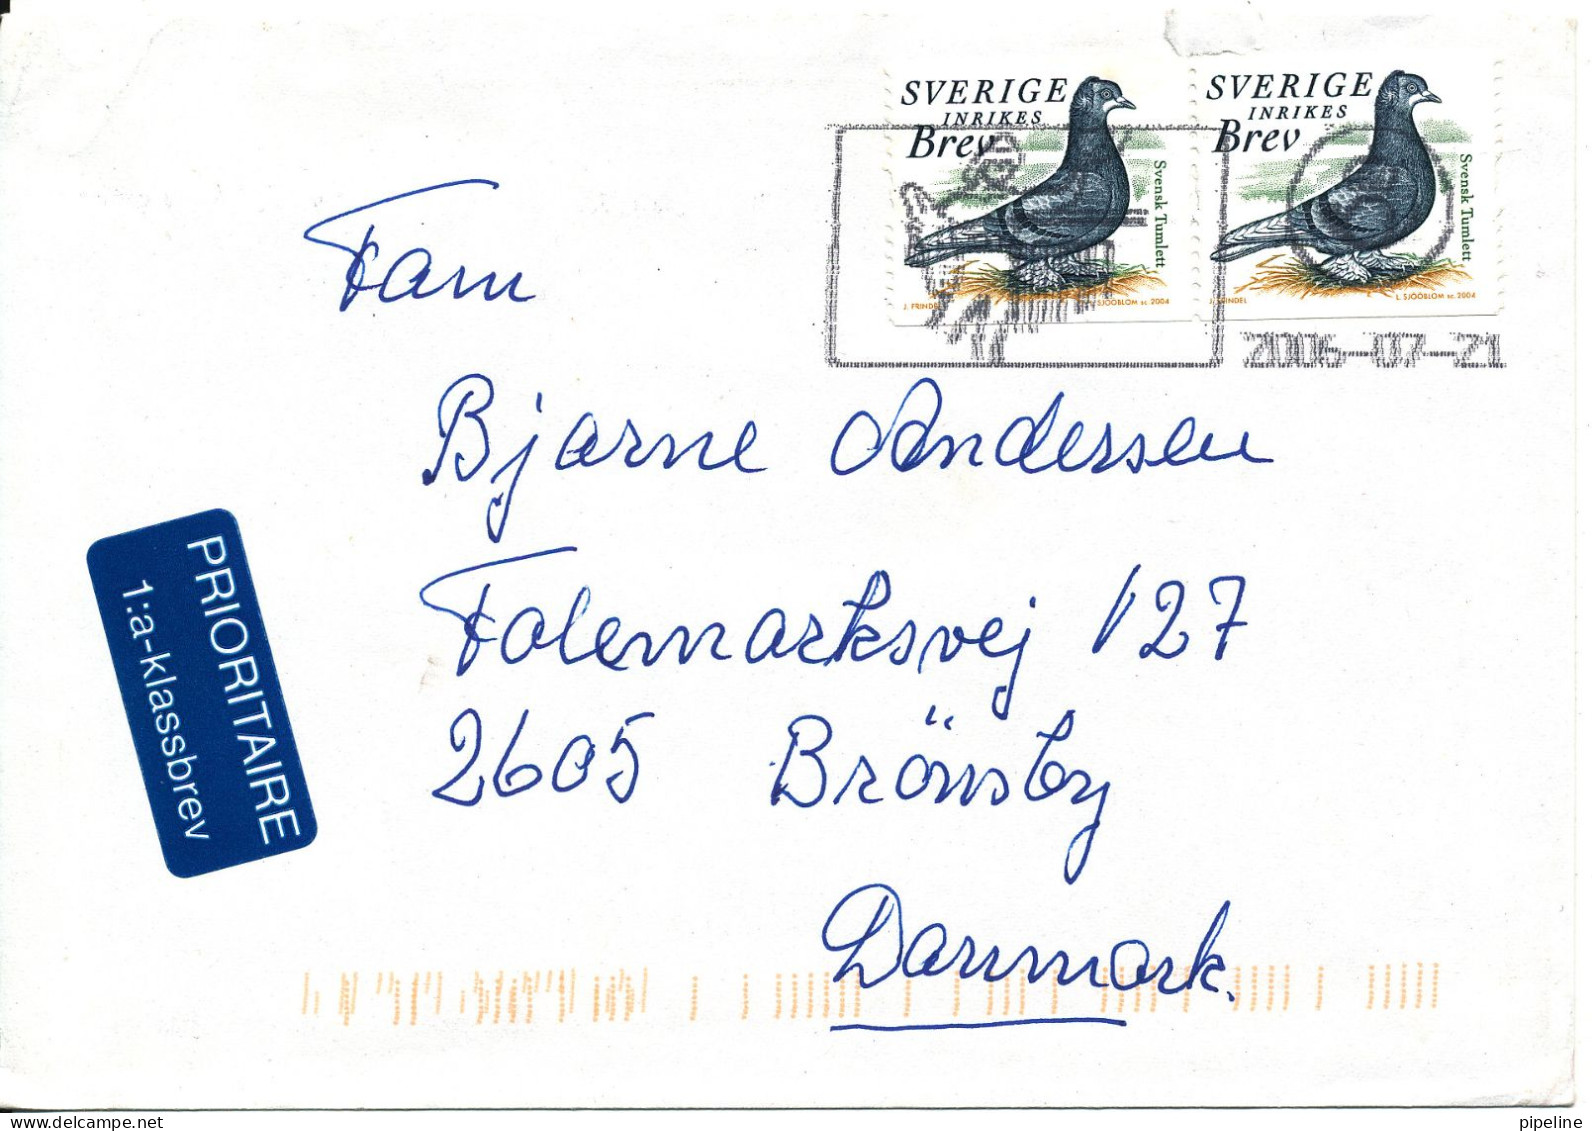 SVERIGE
INRIKES
Brev
Svensk Tumlett
J. FRINDEL
SJÖÖBLOM sc. 2004
SVERIGE
INRIKES
Brev
Svensk Tumlett
L. SJÖÖBLOM sc. 2004
2006-07-21
Fam
Bjarne Andersen
Folemarksvej 127
2605 Brönsby
Danmark.
PRIORITAIRE
1:a-klassbrev
pipeline